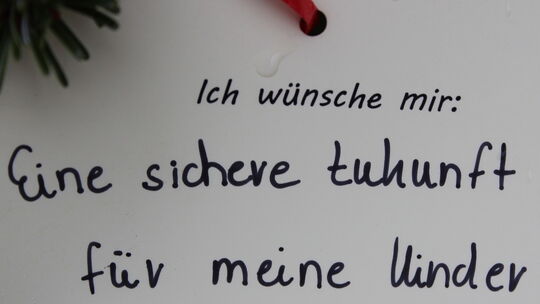 Ich wünsche mir:
Eine sichere Zukunft
für meine Kinder